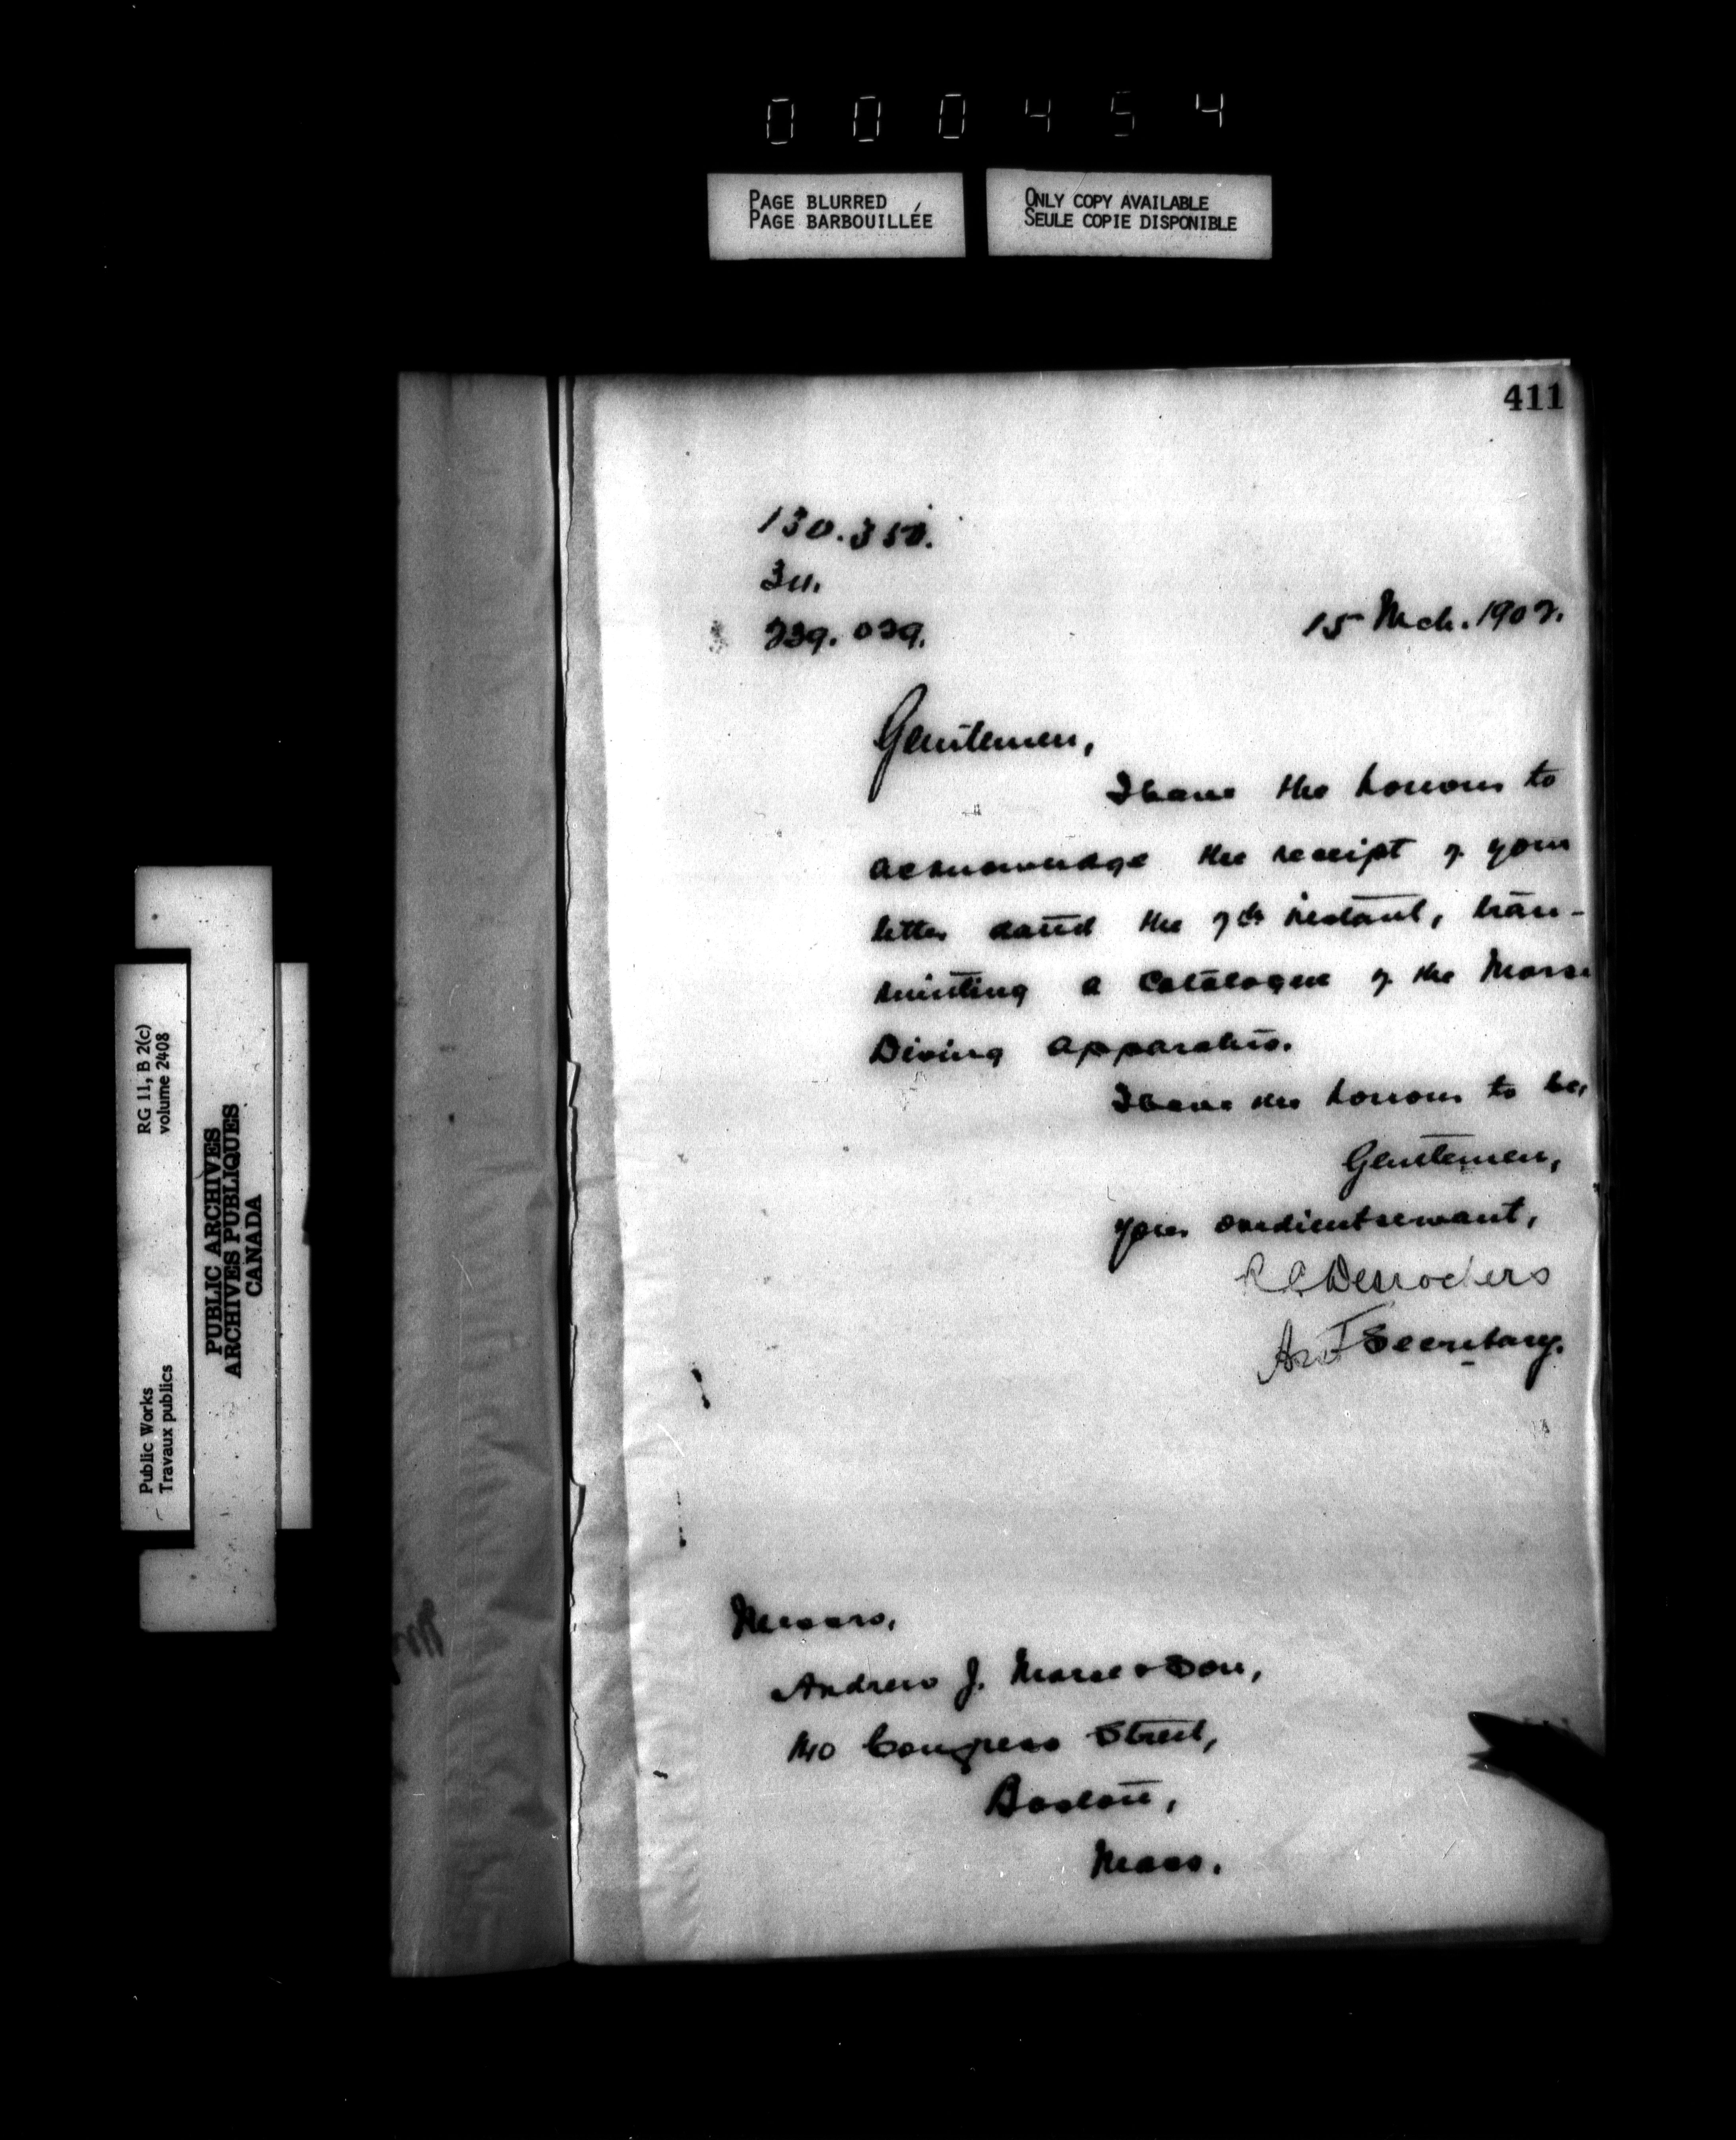 000454
PAGE BLURRED
PAGE BARBOUILLÉE
ONLY COPY AVAILABLE
SEULE COPIE DISPONIBLE
411
130.350.
311.
239.029.
15 Mch. 1902.
Gentlemen,
I have the honour to
acknowledge the receipt of your
letter dated the 7th instant, tran-
smitting a Catalogue of the Morse
Diving Apparatus.
I have the honour to be,
Gentlemen,
Your obedient servant,
R C Desrochers
Asst Secretary.
Messrs,
Andrew J. Morse & Son,
140 Congress Street,
Boston,
Mass.
RG 11, B 2(c)
volume 2408
PUBLIC ARCHIVES
ARCHIVES PUBLIQUES
CANADA
Public Works
Travaux publics